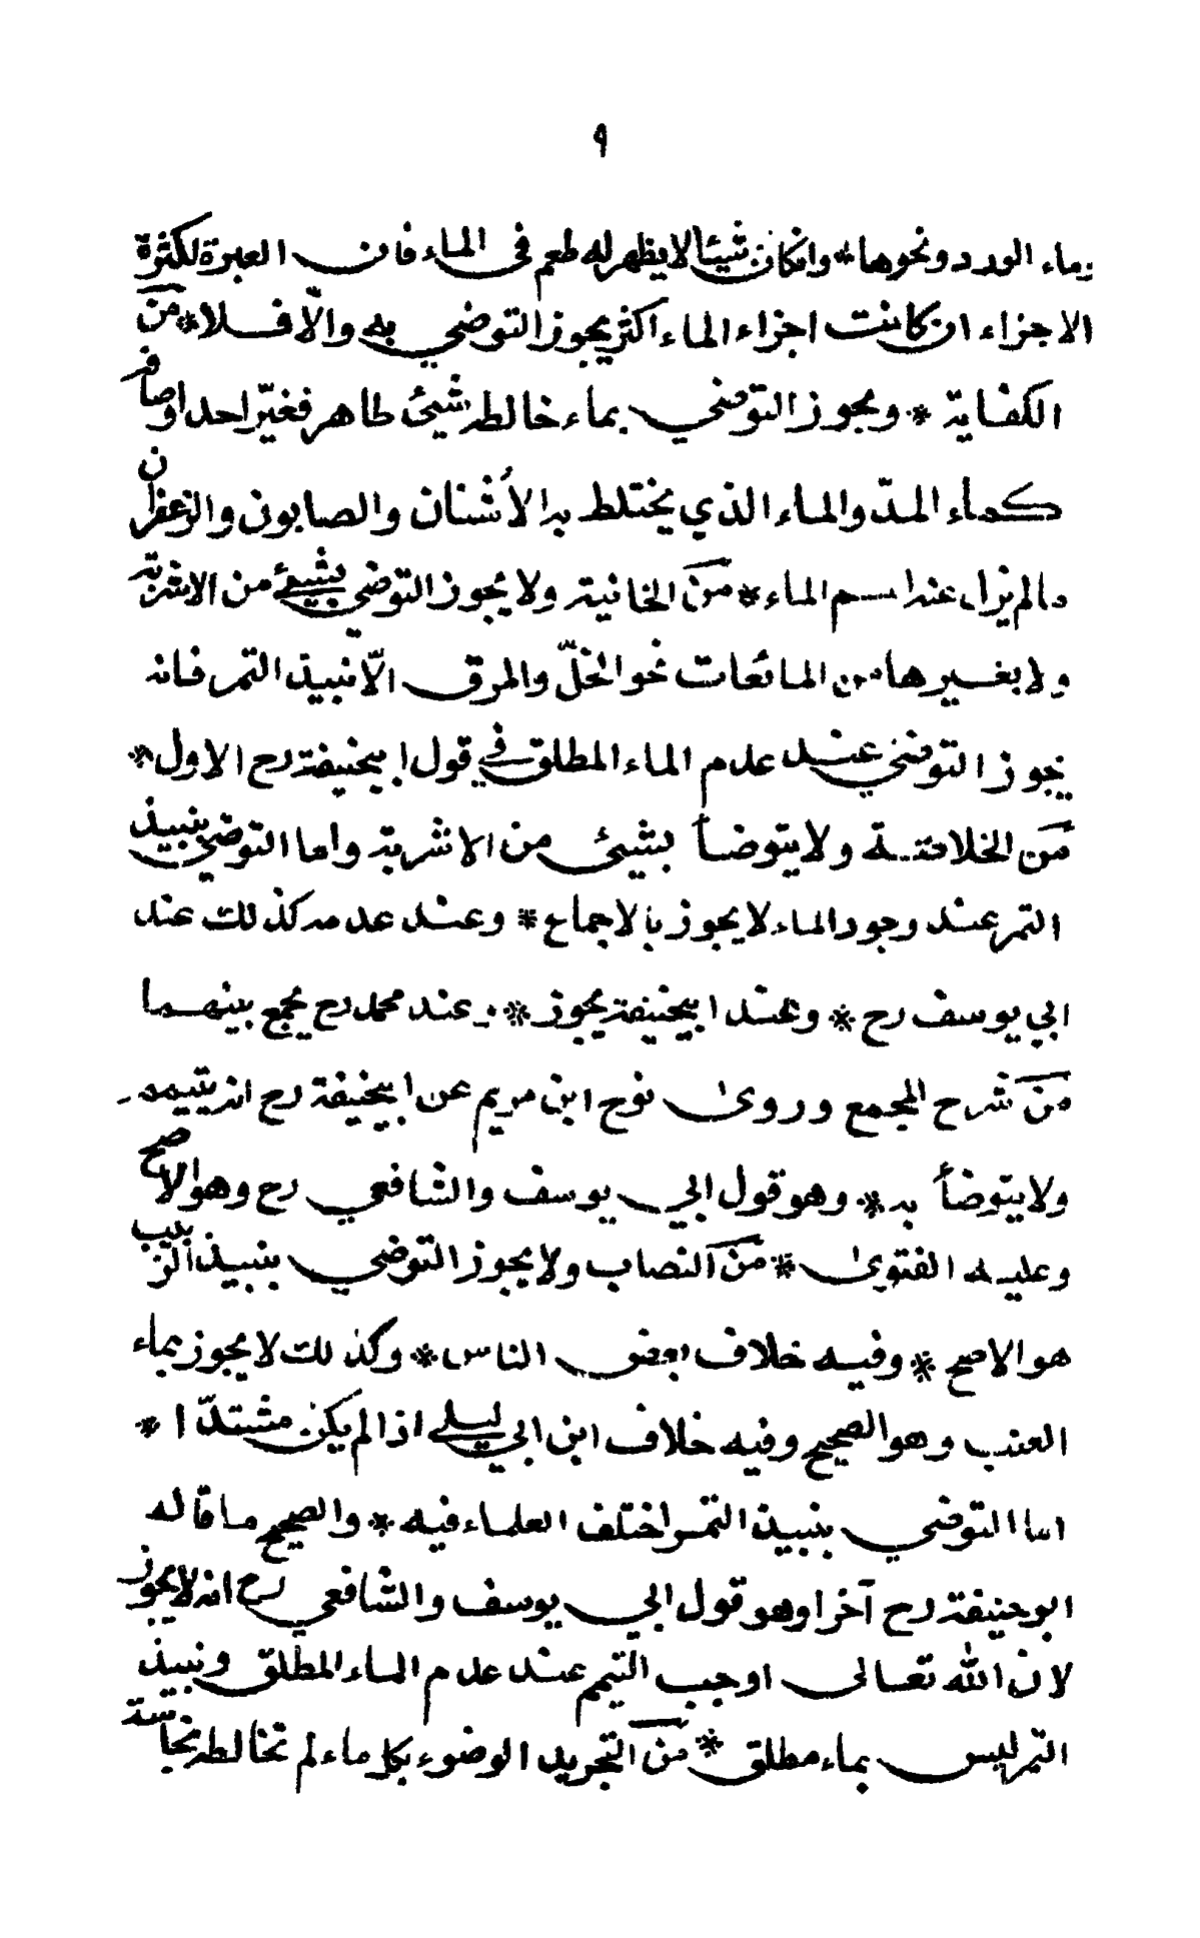 ٩
وماء الورد ونحوها * وان كان شيئا لا يظهر له طعم فى الماء فان العبرة لكثرة
الاجزاء ان كانت اجزاء الماء اكثر يجوز التوضي به والّا فلا * من
الكفاية * ويجوز التوضي بماء خالطه شيئ طاهر فغيّر احد اوصافه
كماء المدّ والماء الذي يختلط به الأشنان والصابون والزعفران
مالم يزل عنه اسم الماء * من الخانية ولا يجوز التوضي بشيئ من الاشربة
ولا بغيرها من المائعات نحو الخلّ والمرق الّا نبيذ التمر فانه
يجوز التوضي عند عدم الماء المطلق في قول ابيحنيفة رح الاول *
من الخلاصة ولا يتوضأ بشيئ من الاشربة واما التوضي بنبيذ
التمر عند وجود الماء لا يجوز بالاجماع * وعند عدمه كذلك عند
ابي يوسف رح * وعند ابيحنيفة يجوز * وعند محمد رح يجمع بينهما
من شرح المجمع وروى نوح ابن مريم عن ابيحنيفة رح انه يتيمم
ولا يتوضأ به * وهو قول ابي يوسف والشافعي رح وهو الاصح
وعليه الفتوى * من النصاب ولا يجوز التوضي بنبيذ الزبيب
هو الاصح * وفيه خلاف بعض الناس * وكذلك لا يجوز بماء
العنب وهو الصحيح وفيه خلاف ابن ابي ليلى اذا لم يكن مشتدّا *
اما التوضي بنبيذ التمر اختلف العلماء فيه * والصحيح ما قاله
ابو حنيفة رح آخرا وهو قول ابي يوسف والشافعي رح انه لا يجوز
لان الله تعالى اوجب التيمم عند عدم الماء المطلق ونبيذ
التمر ليس بماء مطلق * من التجريد الوضوء بكل ماء لم تخالطه نجاسة